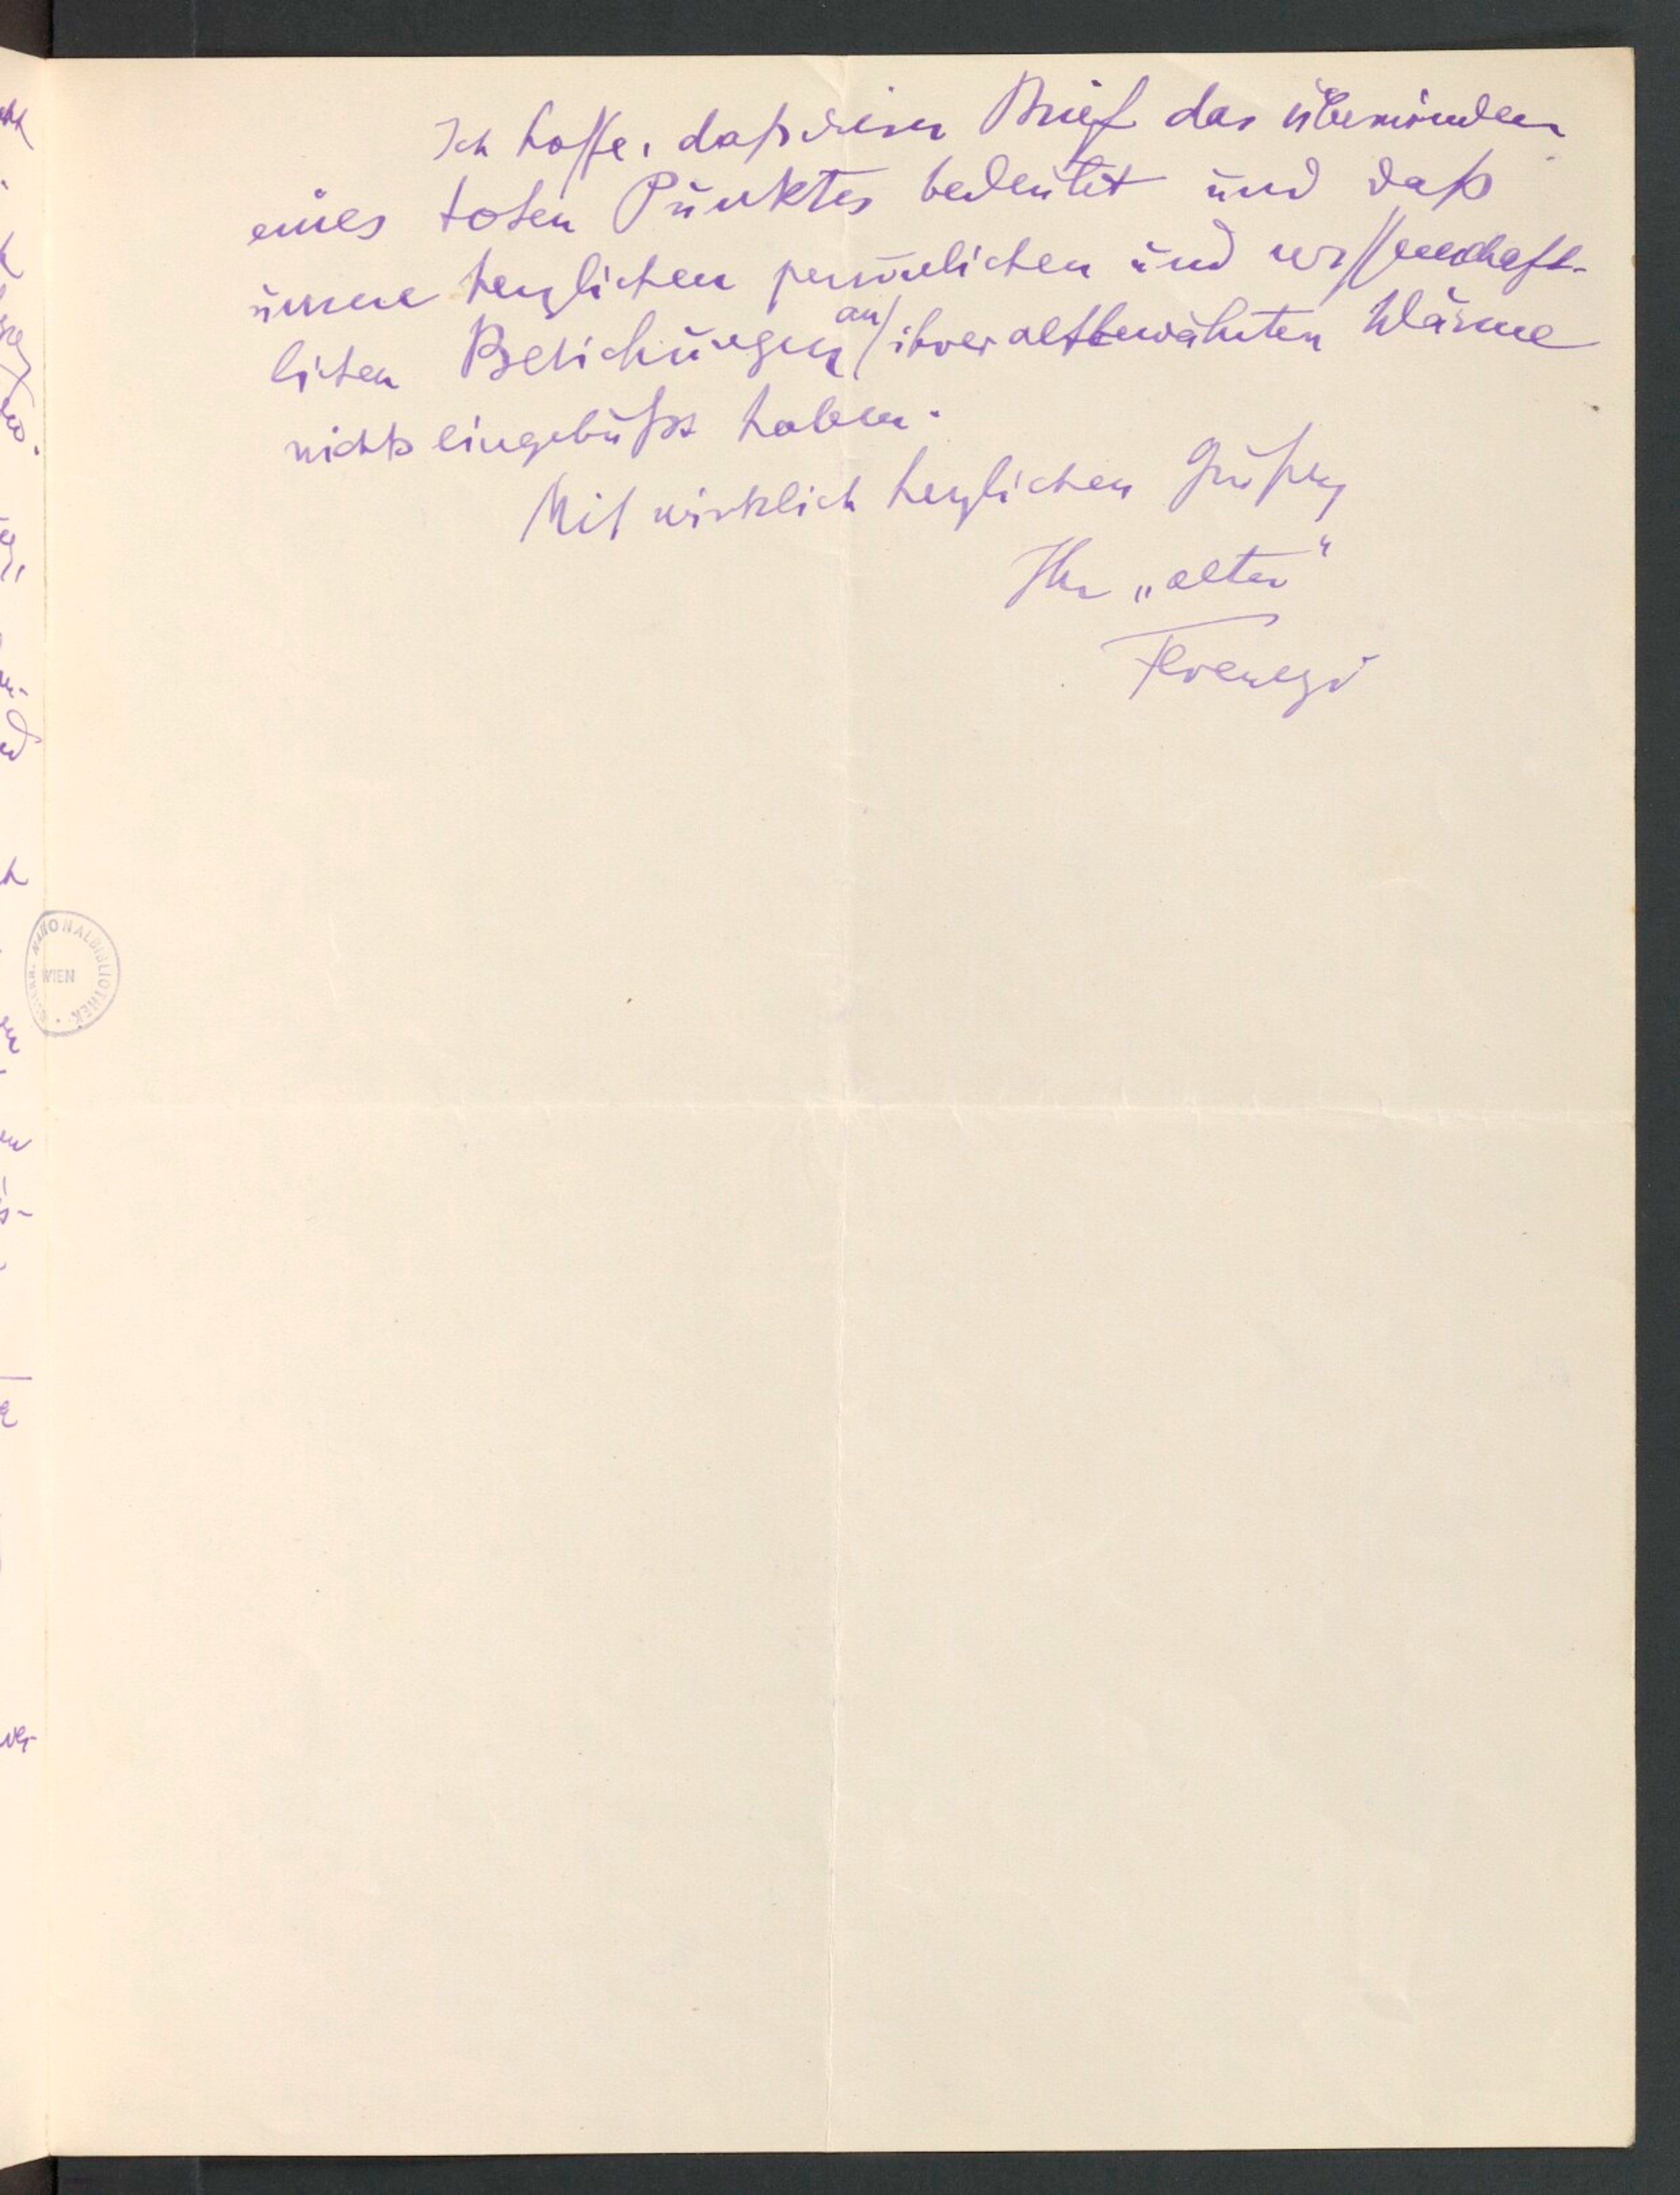 Ich hoffe, daß dieser Brief das überwinden
eines toten Punktes bedeutet und daß
unsere herzlichen persönlichen und wissenschaft-
lichen Beziehungen an ihrer altbewährten Wärme
nichts eingebüßt haben.
Mit wirklich herzlichen Grüßen
Ihr „alter“
Ferenczi
NATIONALBIBLIOTHEK
WIEN